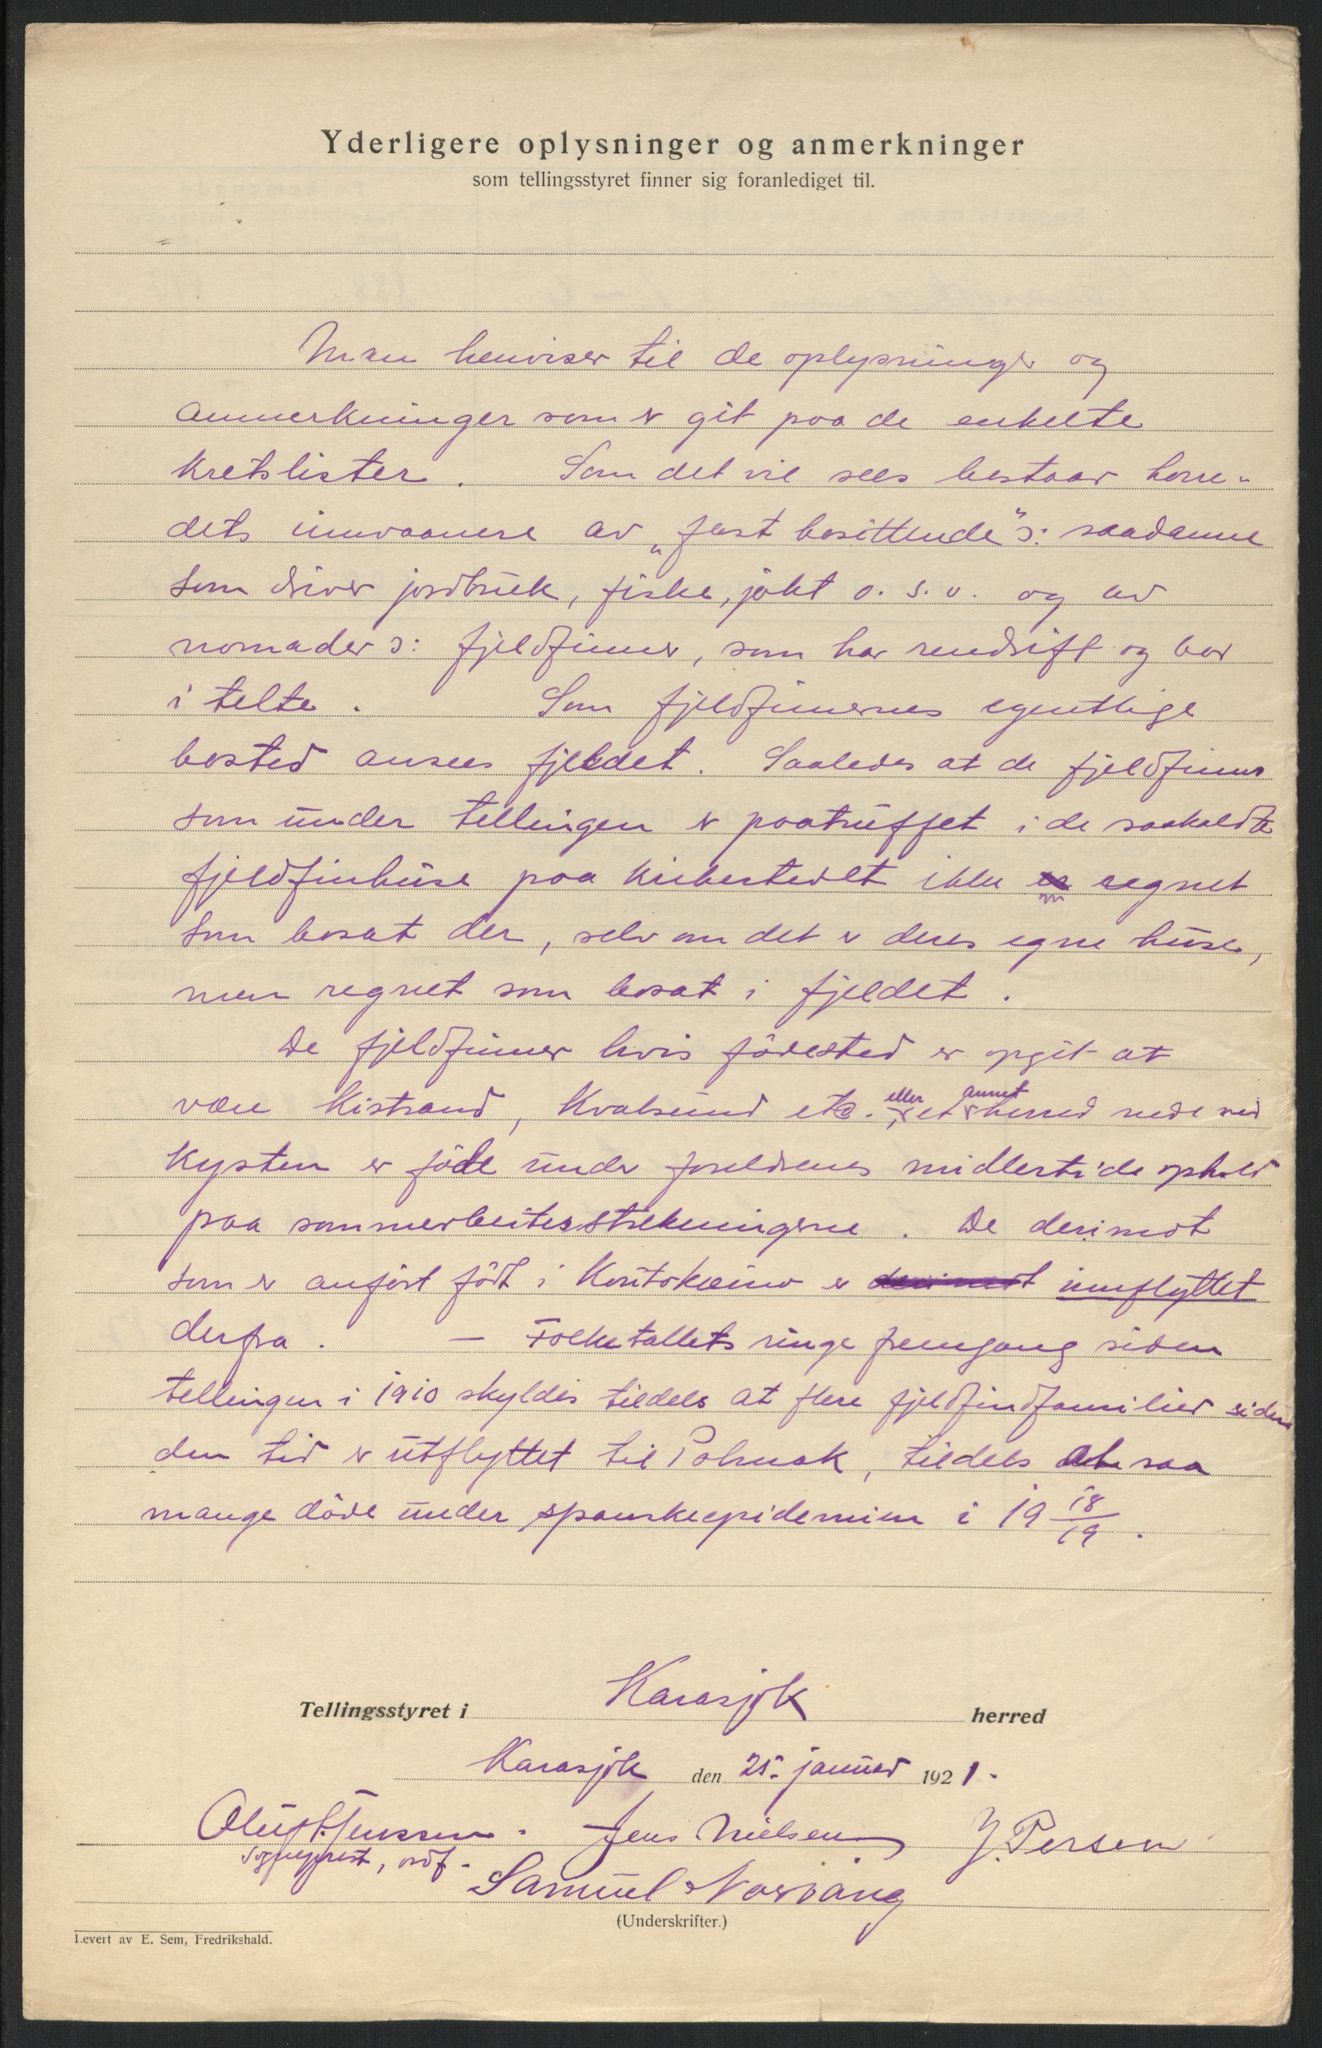 Yderligere oplysninger og anmerkninger
som tellingsstyret finner sig foranlediget til.
Man henviser til de oplysninger og
anmerkninger som er git paa de enkelte
kretslister. Som det vil sees bestaar herre-
dets innvaanere av „fast bosittende" ɔ: saadanne
som driver jordbruk, fiske, jakt o. s. v. og av
nomader ɔ: fjeldfinner, som har rendrift og bor
i telte. Som fjeldfinnernes egentlige
bosted ansees fjeldet. Saaledes at de fjeldfinner
som under tellingen er paatruffet i de saakaldte
fjeldfinhuse paa kirkestedet ikke er regnet
som bosat der, selv om det er deres egne huse,
men regnet som bosat i fjeldet.
De fjeldfinner hvis fødested er opgit at
være Kistrand, Kvalsund etc. eller et annet herred nede ved
kysten er født under foreldrenes midlertidige ophold
paa sommerbeitesstrekningene. De derimot
som er anført født i Koutokeino er derimot innflyttet
derfra. — Folketallets ringe fremgang siden
tellingen i 1910 skyldes tildels at flere fjeldfindfamilier siden
den tid er utflyttet til Polmak, tildels at saa
mange døde under spanskeepidemien i 19 18/19.
Tellingsstyret i Karasjok herred
Karasjok den 25. januar 1921.
Oluf Jenssen. Jens Nielsen J. Persen
Sogneprest, ordf.
Samuel Norvang
(Underskrifter.)
Levert av E. Sem, Fredrikshald.